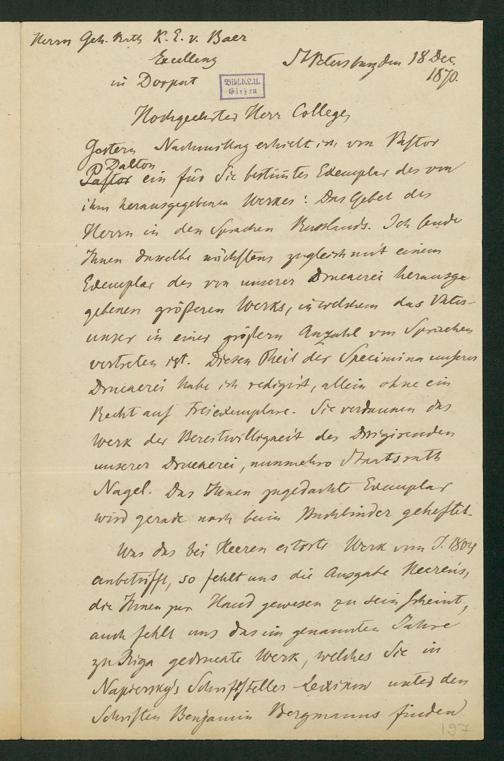 Herrn Geh. Rath K. E. v. Baer
Excellenz
in Dorpat
St Petersburg den 18 Dec.
1870.
Bibl. d. L. U.
Gießen
Hochgeehrter Herr College,
Gestern Nachmittag erhielt ich von Pastor
Dalton
Pastor ein für Sie bestimtes Exemplar des von
ihm herausgegebenen Werkes: Das Gebet des
Herrn in den Sprachen Russlands. Ich sende
Ihnen dasselbe nächstens zugleich mit einem
Exemplar des von unserer Druckerei herausge
gebenen größeren Werks, in welchem das Vater-
unser in einer größern Anzahl von Sprachen
vertreten ist. Diesen Theil der Specimina unserer
Druckerei habe ich redigirt, allein ohne ein
Recht auf Freiexemplare. Sie verdanken das
Werk der Bereitwilligkeit des Dirigirenden
unserer Druckerei, nunmehro Staatsrath
Nagel. Das Ihnen zugedachte Exemplar
wird gerade noch beim Buchbinder geheftet.
Was das bei Heeren citirte Werk vom J. 1804
anbetrifft, so fehlt uns die Ausgabe Heeren's,
die Ihnen zur Hand gewesen zu sein scheint,
auch fehlt uns das im genannten Jahre
zu Riga gedruckte Werk, welches Sie in
Napiersky's Schriftsteller-Lexikon unter den
Schriften Benjamin Bergmanns finden
197